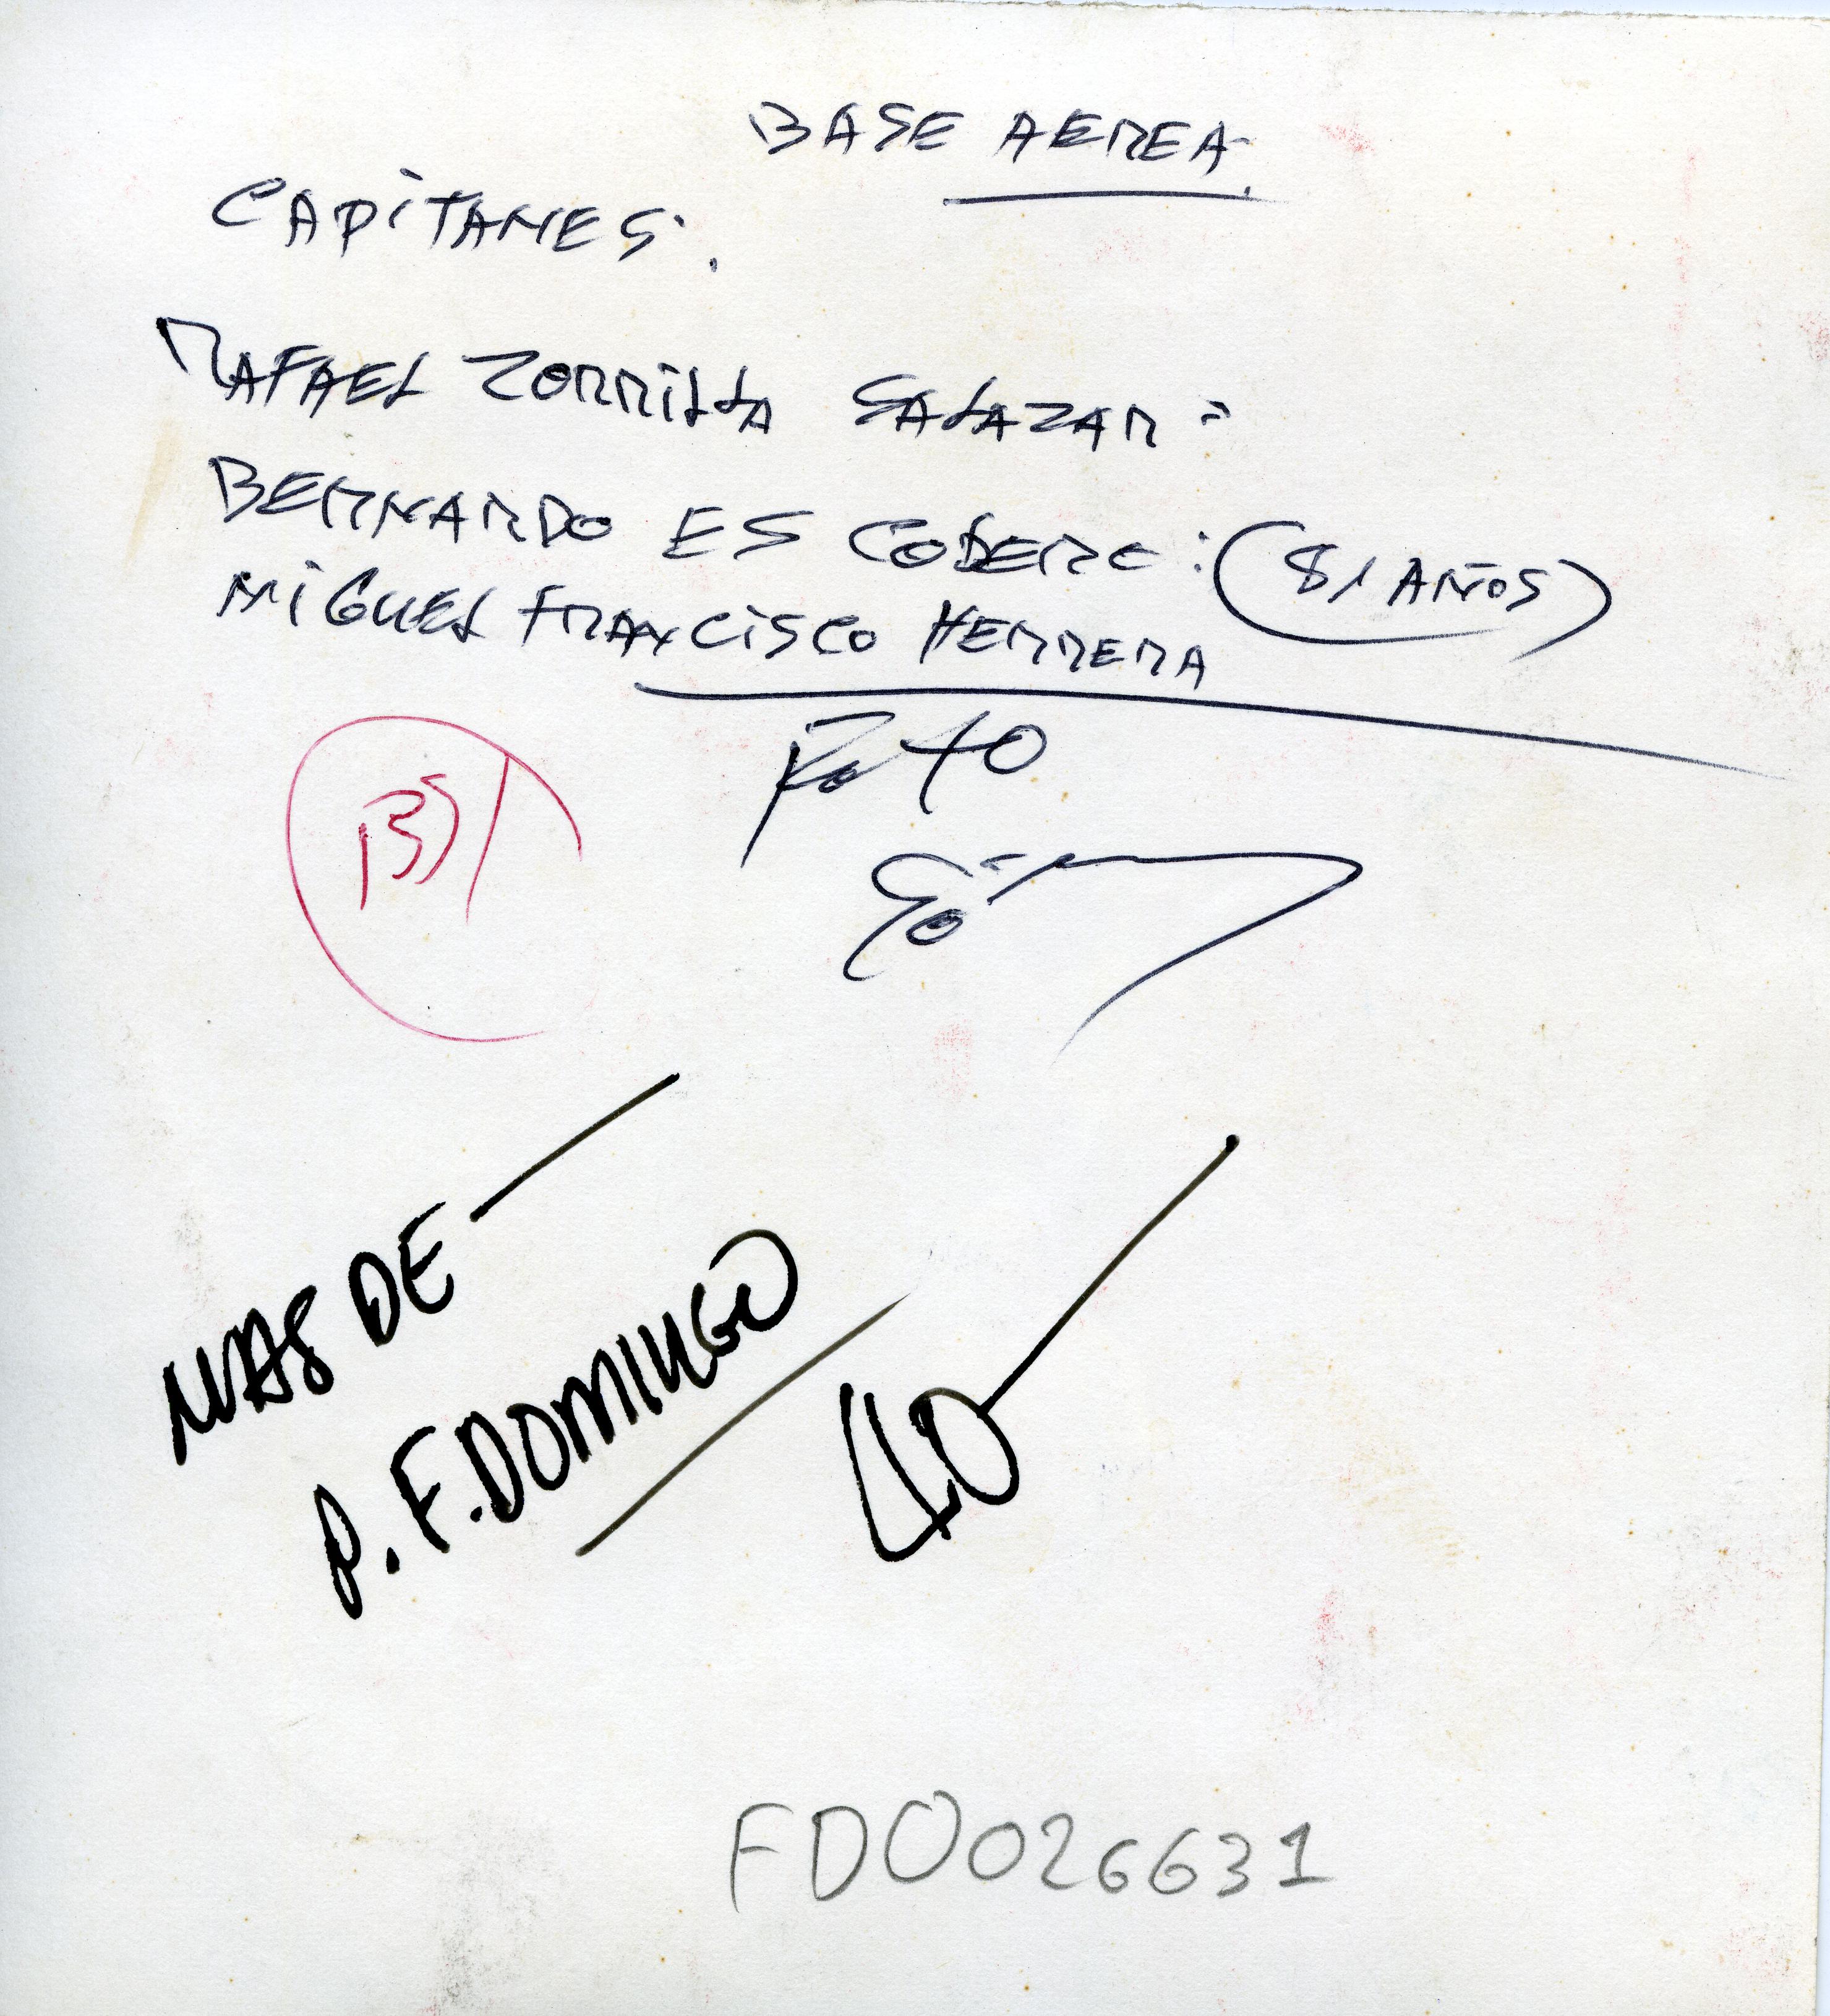 BASE AEREA.
CAPITANES:
RAFAEL ZORRILLA SALAZAR =
BERNARDO ES COBERC : (81 AÑOS)
MIGUEL FRANCISCO HERRERA
40
MAS DE
P. F. DOMINGO
40
FD0026631